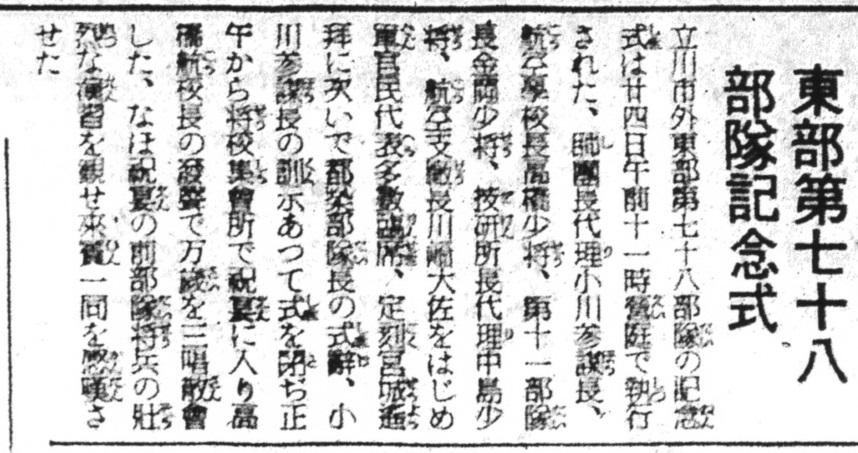 東部第七十八
部隊記念式
立川市外東部第七十八部隊の記念
式は廿四日午前十一時營庭で執行
された、師團長代理小川参謀長、
航空學校長高橋少将、第十一部隊
長金岡少将、技研所長代理中島少
将、航空支廠長川崎大佐をはじめ
軍官民代表多數臨席、定刻宮城遙
拜に次いで都築部隊長の式辭、小
川参謀長の訓示あつて式を閉ぢ正
午から将校集會所で祝宴に入り高
橋航校長の發聲で万歳を三唱散會
した、なほ祝宴の前部隊将兵の壯
烈な演習を観せ來賓一同を感嘆さ
せた